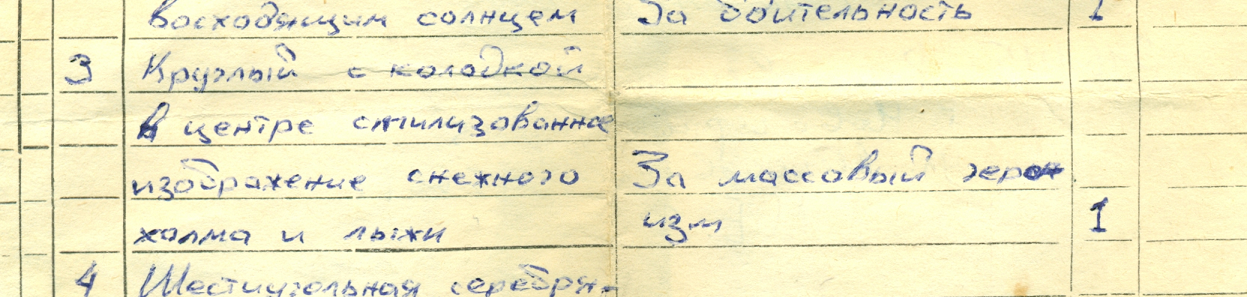 восходящим солнцем За бдительность 1
3 Круглый с колодкой
в центре стилизованное
изображение снежного За массовый геро-
холма и лыжи изм 1
4 Шестиугольная серебрян-